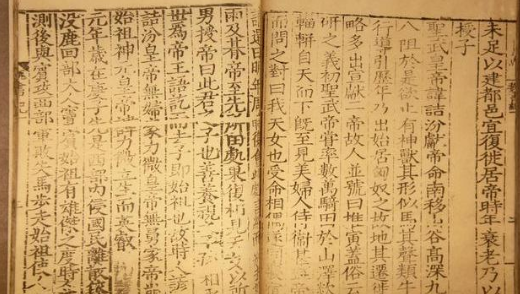 未足以建都邑宜復徙居帝時年衰老乃
授子
聖武皇帝諱詰汾獻帝命南移山谷高深九
八阻於是欲止有神獸其形似馬其聲類牛
行導引歷年乃出始居匈奴之故地其遷徙
略多出宣獻二帝故人並號曰推寅蓋俗云
研之義初聖武帝嘗率數萬騎田於山澤欻
輜軿自天而下既至見美婦人侍衛甚盛帝
而問之對曰我天女也受命相偶
請還曰明年周時復會此處
雨及朞帝至先所田處果復相見天女以所
男授帝曰此君之子也善養視之子
世為帝王語訖而去子即始祖也故時人諺
詰汾皇帝無婦家力微皇帝無舅家帝崩
始祖神元皇帝諱力微立生而英叡
元年歲在庚子先是西部內侵國民離散依
沒鹿回部大人竇賓始祖有雄傑之度時人
測後與賓攻西部軍敗失馬步走始祖使人